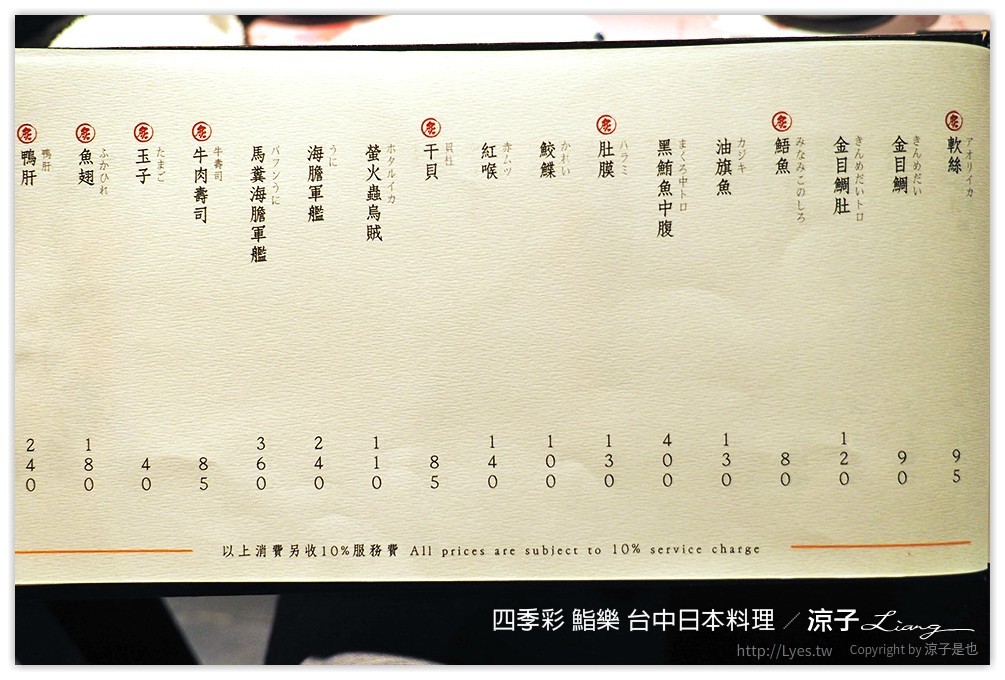 アオリイカ
炙軟絲
95
きんめだい
金目鯛
90
きんめだいトロ
金目鯛肚
120
みなみこのしろ
炙鯃魚
80
カジキ
油旗魚
130
まくろ中トロ
黑鮪魚中腹
400
ハラミ
炙肚膜
130
かれい
鮫鰈
100
赤ムツ
紅喉
140
貝柱
炙干貝
85
ホタルイカ
螢火蟲烏賊
110
うに
海膽軍艦
240
バフンうに
馬糞海膽軍艦
360
牛壽司
炙牛肉壽司
85
たまご
炙玉子
40
ふかひれ
炙魚翅
180
鴨肝
炙鴨肝
240
以上消費另收10%服務費 All prices are subject to 10% service charge
四季彩 鮨樂 台中日本料理 ／ 涼子 Liang
http://Lyes.tw Copyright by 涼子是也